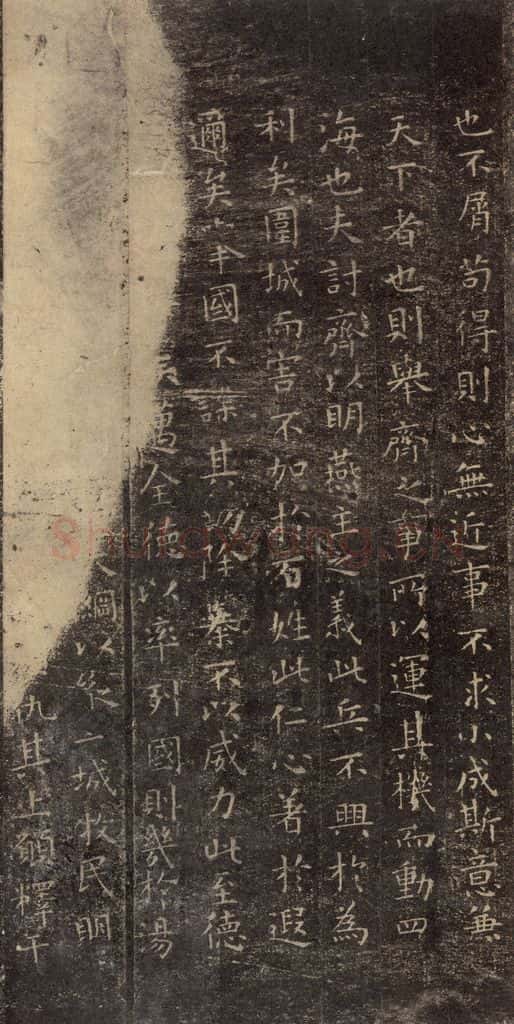 也不屑苟得則心無近事不求小成斯意兼
天下者也則舉齊之事所以運其機而動四
海也夫討齊以明燕主之義此兵不興於為
利矣圍城而害不加於百姓此仁心著於遐
邇矣舉國不謀其功除暴不以威力此至德
矣邁全德以率列國則幾於湯
以二城牧民明
仇其上願釋干
Shufawang.CN